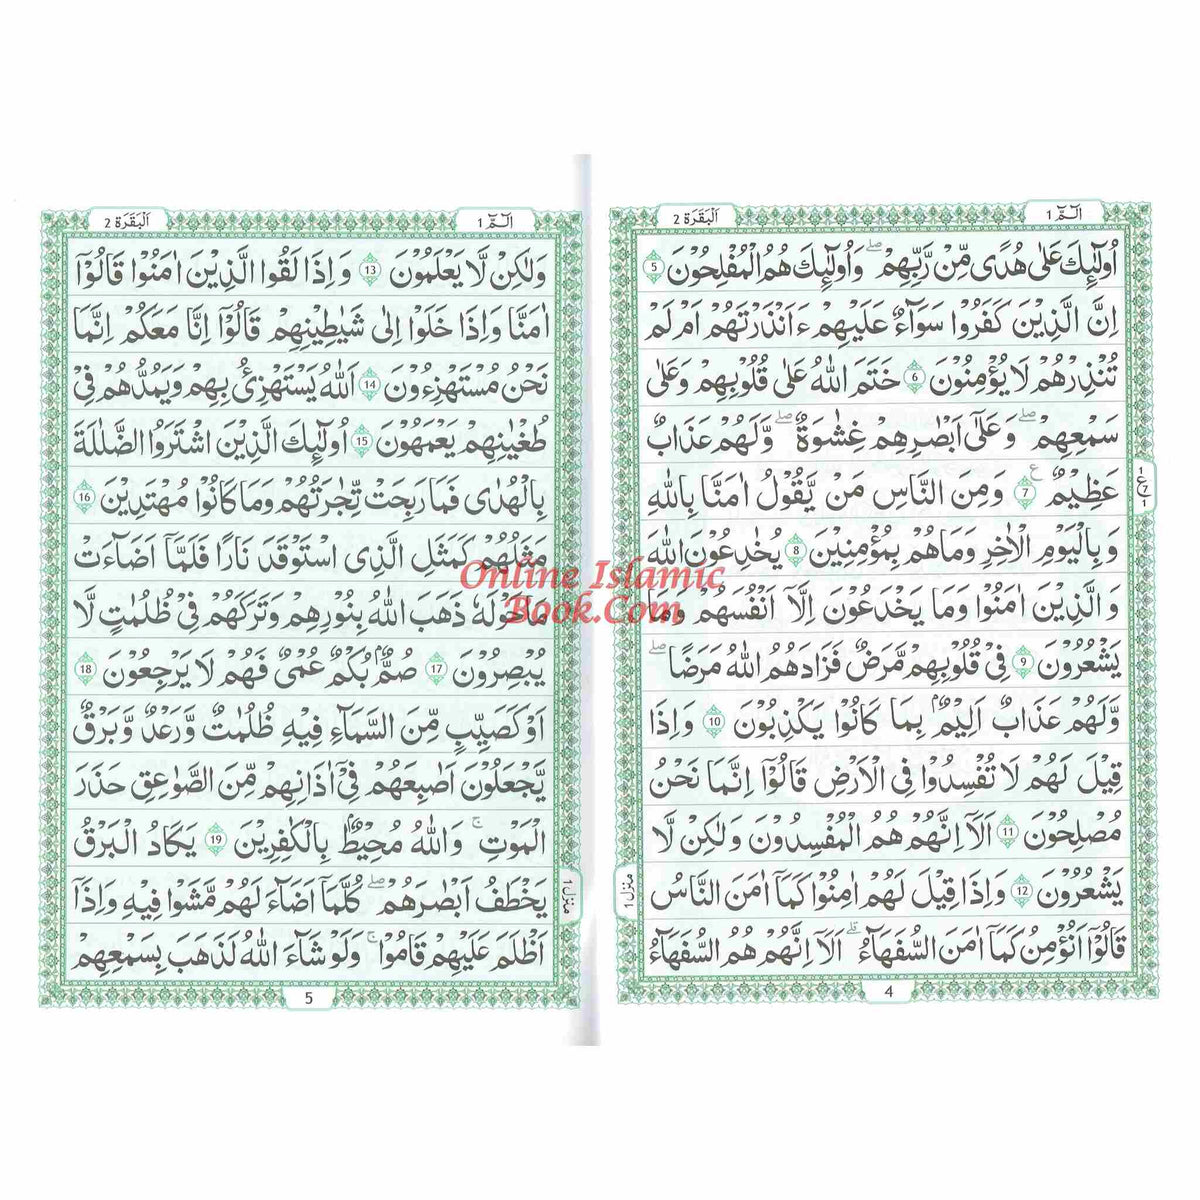 الٓمّٓ 1
اَلْبَقَرَة 2
اُولٰٓئِكَ عَلٰى هُدًى مِّنْ رَّبِّهِمْ ۖ وَاُولٰٓئِكَ هُمُ الْمُفْلِحُوْنَ 5
اِنَّ الَّذِيْنَ كَفَرُوْا سَوَآءٌ عَلَيْهِمْ ءَاَنْذَرْتَهُمْ اَمْ لَمْ
تُنْذِرْهُمْ لَا يُؤْمِنُوْنَ 6 خَتَمَ اللّٰهُ عَلٰى قُلُوْبِهِمْ وَعَلٰى
سَمْعِهِمْ ۖ وَعَلٰٓى اَبْصَارِهِمْ غِشٰوَةٌ ۖ وَّلَهُمْ عَذَابٌ
عَظِيْمٌ 7 ع وَمِنَ النَّاسِ مَنْ يَّقُوْلُ اٰمَنَّا بِاللّٰهِ
وَبِالْيَوْمِ الْاٰخِرِ وَمَا هُمْ بِمُؤْمِنِيْنَ 8 يُخٰدِعُوْنَ اللّٰهَ
وَالَّذِيْنَ اٰمَنُوْا وَمَا يَخْدَعُوْنَ اِلَّآ اَنْفُسَهُمْ وَمَا
يَشْعُرُوْنَ 9 فِيْ قُلُوْبِهِمْ مَّرَضٌ فَزَادَهُمُ اللّٰهُ مَرَضًا ۖ
وَّلَهُمْ عَذَابٌ اَلِيْمٌۢ بِمَا كَانُوْا يَكْذِبُوْنَ 10 وَاِذَا
قِيْلَ لَهُمْ لَا تُفْسِدُوْا فِي الْاَرْضِ قَالُوْٓا اِنَّمَا نَحْنُ
مُصْلِحُوْنَ 11 اَلَآ اِنَّهُمْ هُمُ الْمُفْسِدُوْنَ وَلٰكِنْ لَّا
يَشْعُرُوْنَ 12 وَاِذَا قِيْلَ لَهُمْ اٰمِنُوْا كَمَآ اٰمَنَ النَّاسُ
قَالُوْٓا اَنُؤْمِنُ كَمَآ اٰمَنَ السُّفَهَآءُ ۗ اَلَآ اِنَّهُمْ هُمُ السُّفَهَآءُ
1
ع
7
1
منزل 1
4
الٓمّٓ 1
اَلْبَقَرَة 2
وَلٰكِنْ لَّا يَعْلَمُوْنَ 13 وَاِذَا لَقُوا الَّذِيْنَ اٰمَنُوْا قَالُوْٓا
اٰمَنَّا وَاِذَا خَلَوْا اِلٰى شَيٰطِيْنِهِمْ قَالُوْٓا اِنَّا مَعَكُمْ اِنَّمَا
نَحْنُ مُسْتَهْزِءُوْنَ 14 اَللّٰهُ يَسْتَهْزِئُ بِهِمْ وَيَمُدُّهُمْ فِيْ
طُغْيٰنِهِمْ يَعْمَهُوْنَ 15 اُولٰٓئِكَ الَّذِيْنَ اشْتَرَوُا الضَّلٰلَةَ
بِالْهُدٰى فَمَا رَبِحَتْ تِّجٰرَتُهُمْ وَمَا كَانُوْا مُهْتَدِيْنَ 16
مَثَلُهُمْ كَمَثَلِ الَّذِى اسْتَوْقَدَ نَارًا فَلَمَّآ اَضَآءَتْ
مَا حَوْلَهٗ ذَهَبَ اللّٰهُ بِنُوْرِهِمْ وَتَرَكَهُمْ فِيْ ظُلُمٰتٍ لَّا
يُبْصِرُوْنَ 17 صُمٌّۢ بُكْمٌ عُمْيٌ فَهُمْ لَا يَرْجِعُوْنَ 18
اَوْ كَصَيِّبٍ مِّنَ السَّمَآءِ فِيْهِ ظُلُمٰتٌ وَّرَعْدٌ وَّبَرْقٌ
يَّجْعَلُوْنَ اَصَابِعَهُمْ فِيْٓ اٰذَانِهِمْ مِّنَ الصَّوَاعِقِ حَذَرَ
الْمَوْتِ ۚ وَاللّٰهُ مُحِيْطٌۢ بِالْكٰفِرِيْنَ 19 يَكَادُ الْبَرْقُ
يَخْطَفُ اَبْصَارَهُمْ ۖ كُلَّمَآ اَضَآءَ لَهُمْ مَّشَوْا فِيْهِ وَاِذَآ
اَظْلَمَ عَلَيْهِمْ قَامُوْا ۚ وَلَوْ شَآءَ اللّٰهُ لَذَهَبَ بِسَمْعِهِمْ
منزل 1
5
Online Islamic
Book.Com